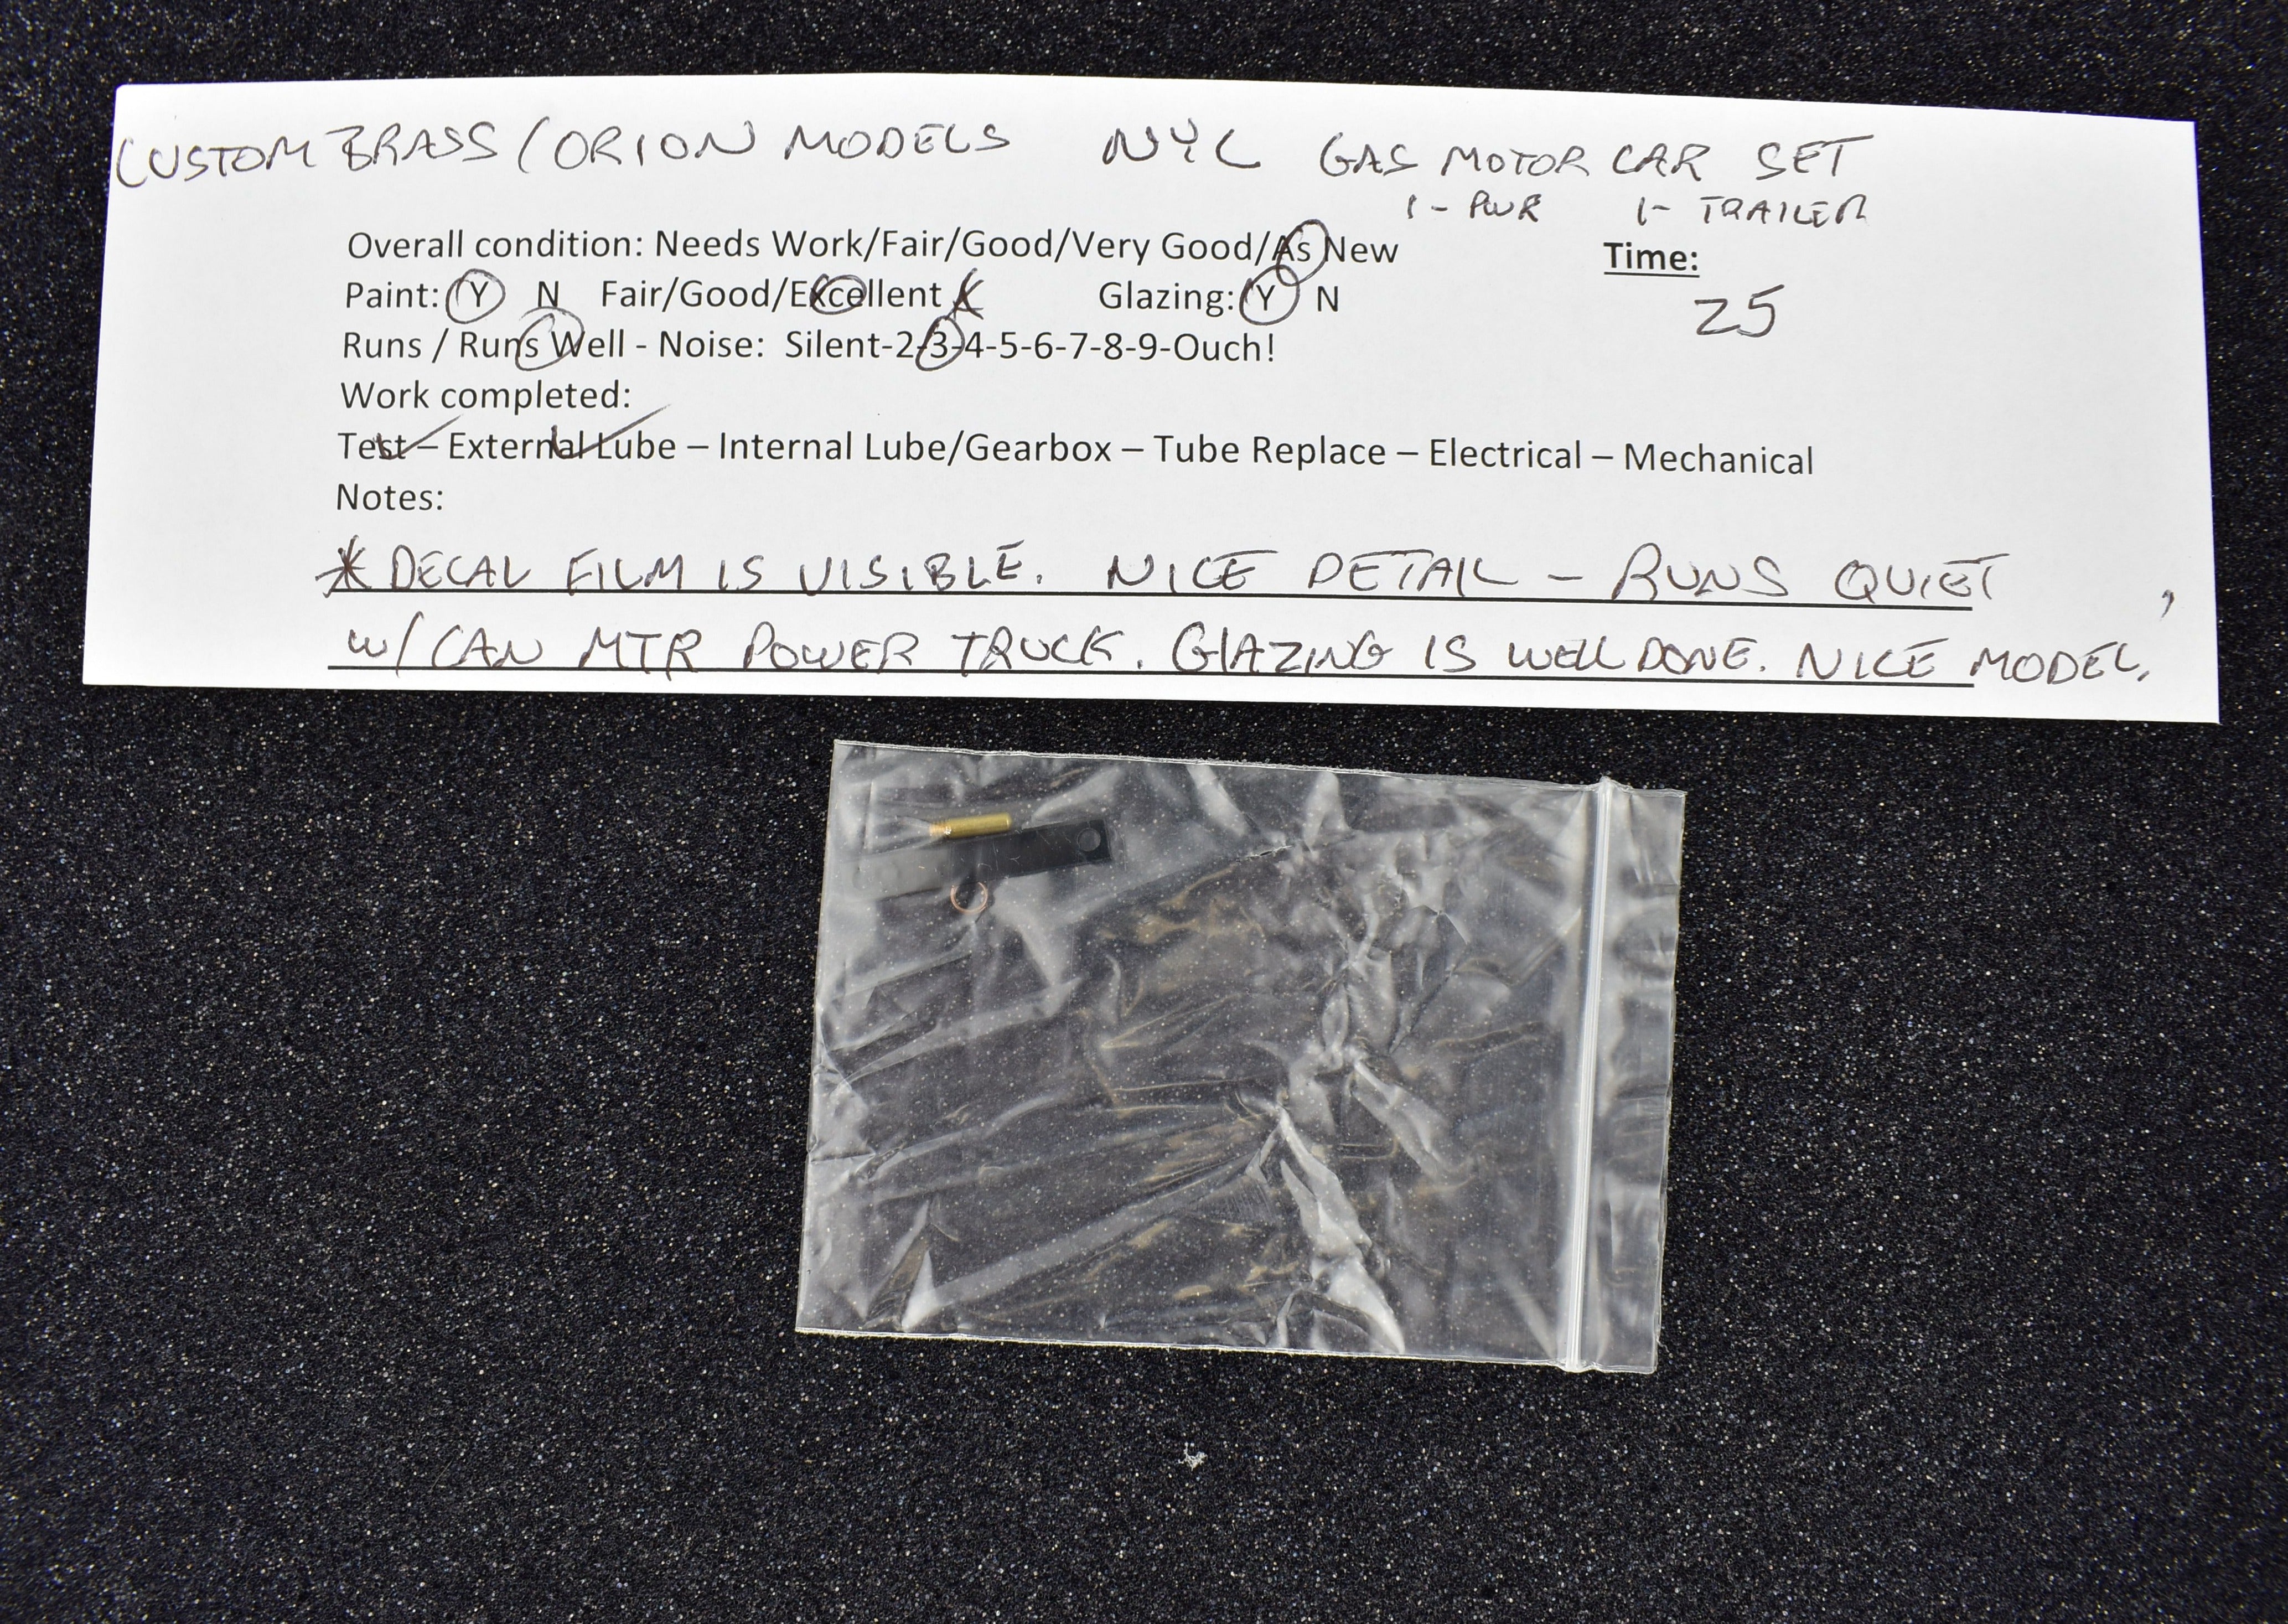 CUSTOM BRASS/ORION MODELS NYC GAS MOTOR CAR SET
1- PWR 1- TRAILER
Overall condition: Needs Work/Fair/Good/Very Good/As New
Time:
Paint: Y N Fair/Good/Excellent * Glazing: Y N
25
Runs / Runs Well - Noise: Silent-2-3-4-5-6-7-8-9-Ouch!
Work completed:
Test – External Lube – Internal Lube/Gearbox – Tube Replace – Electrical – Mechanical
Notes:
* DECAL FILM IS VISIBLE. NICE DETAIL - RUNS QUIET
W/ CAN MTR POWER TRUCK. GLAZING IS WELL DONE. NICE MODEL.